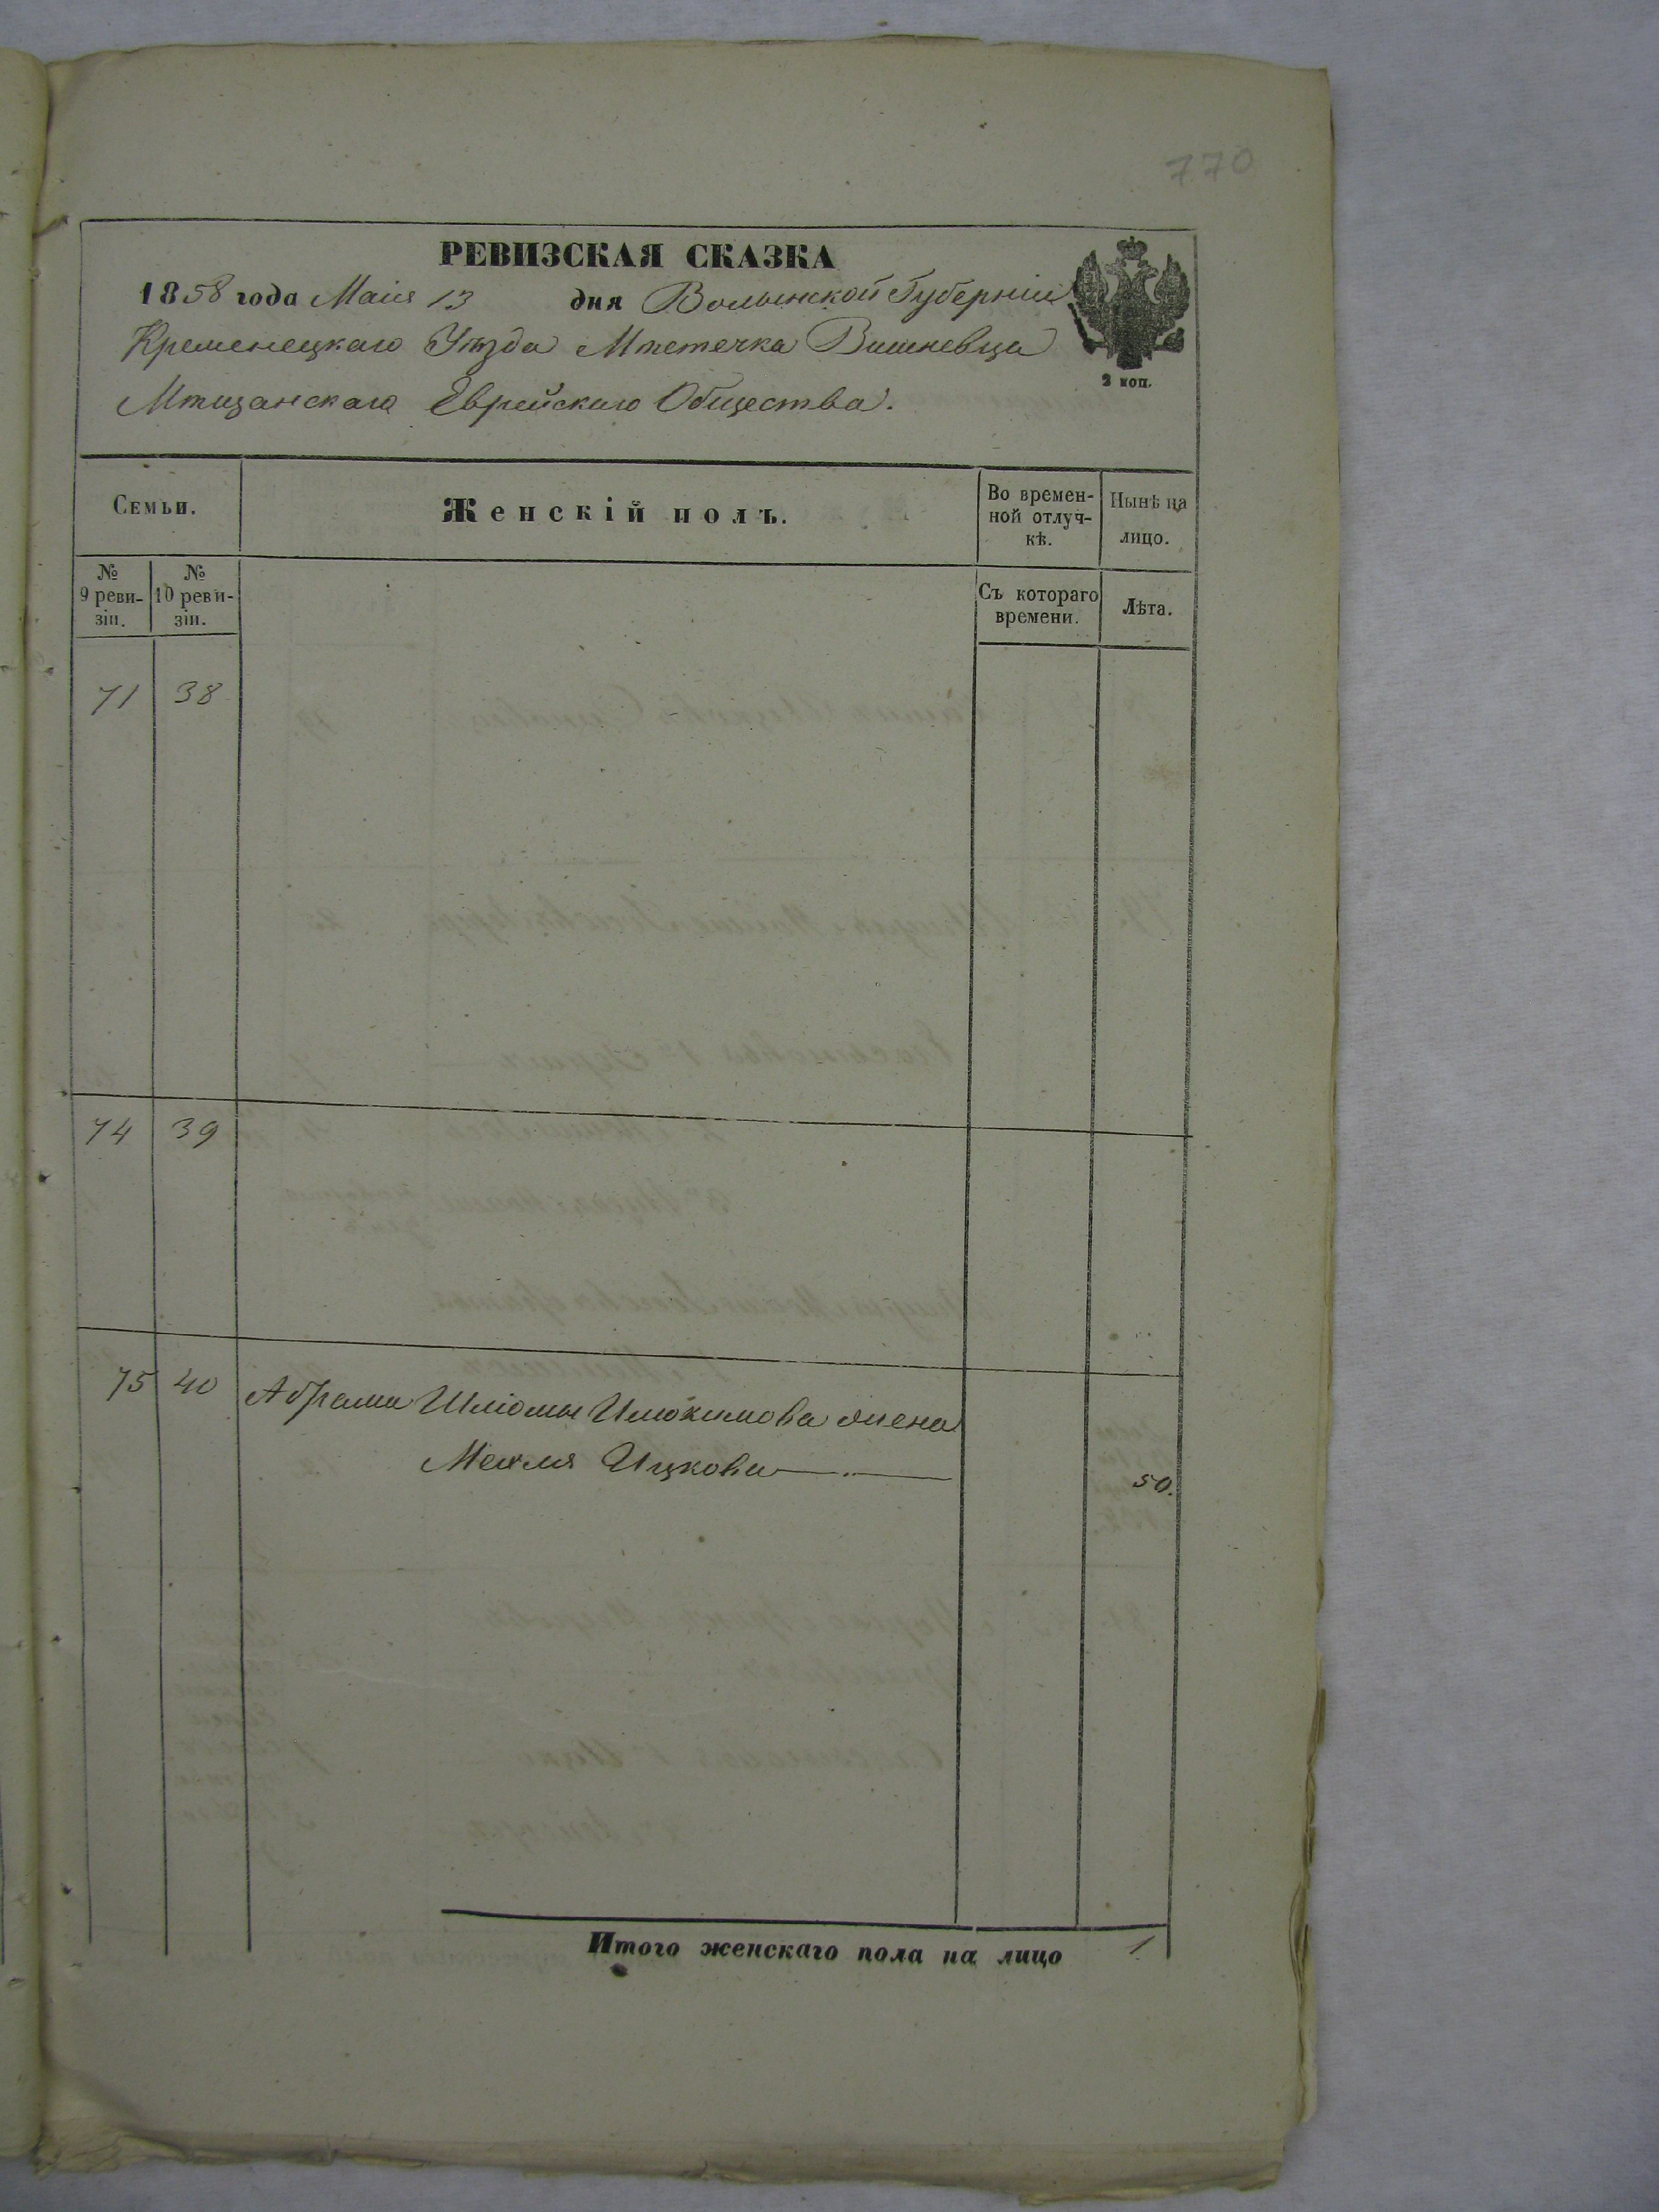 770
РЕВИЗСКАЯ СКАЗКА
1858 года Маія 13 дня Волынской Губерніи
Кременецкаго Уѣзда Мѣстечка Вишневца
Мѣщанскаго Еврейскаго Общества.
2 коп.
Семьи.
Женскій полъ.
Во времен-
ной отлуч-
кѣ.
Нынѣ на
лицо.
№
9 реви-
зіи.
№
10 реви-
зіи.
Съ котораго
времени.
Лѣта.
71 38
74 39
75 40 Абрама Шліомы жена
Ицкова 50.
Итого женскаго пола на лицо 1